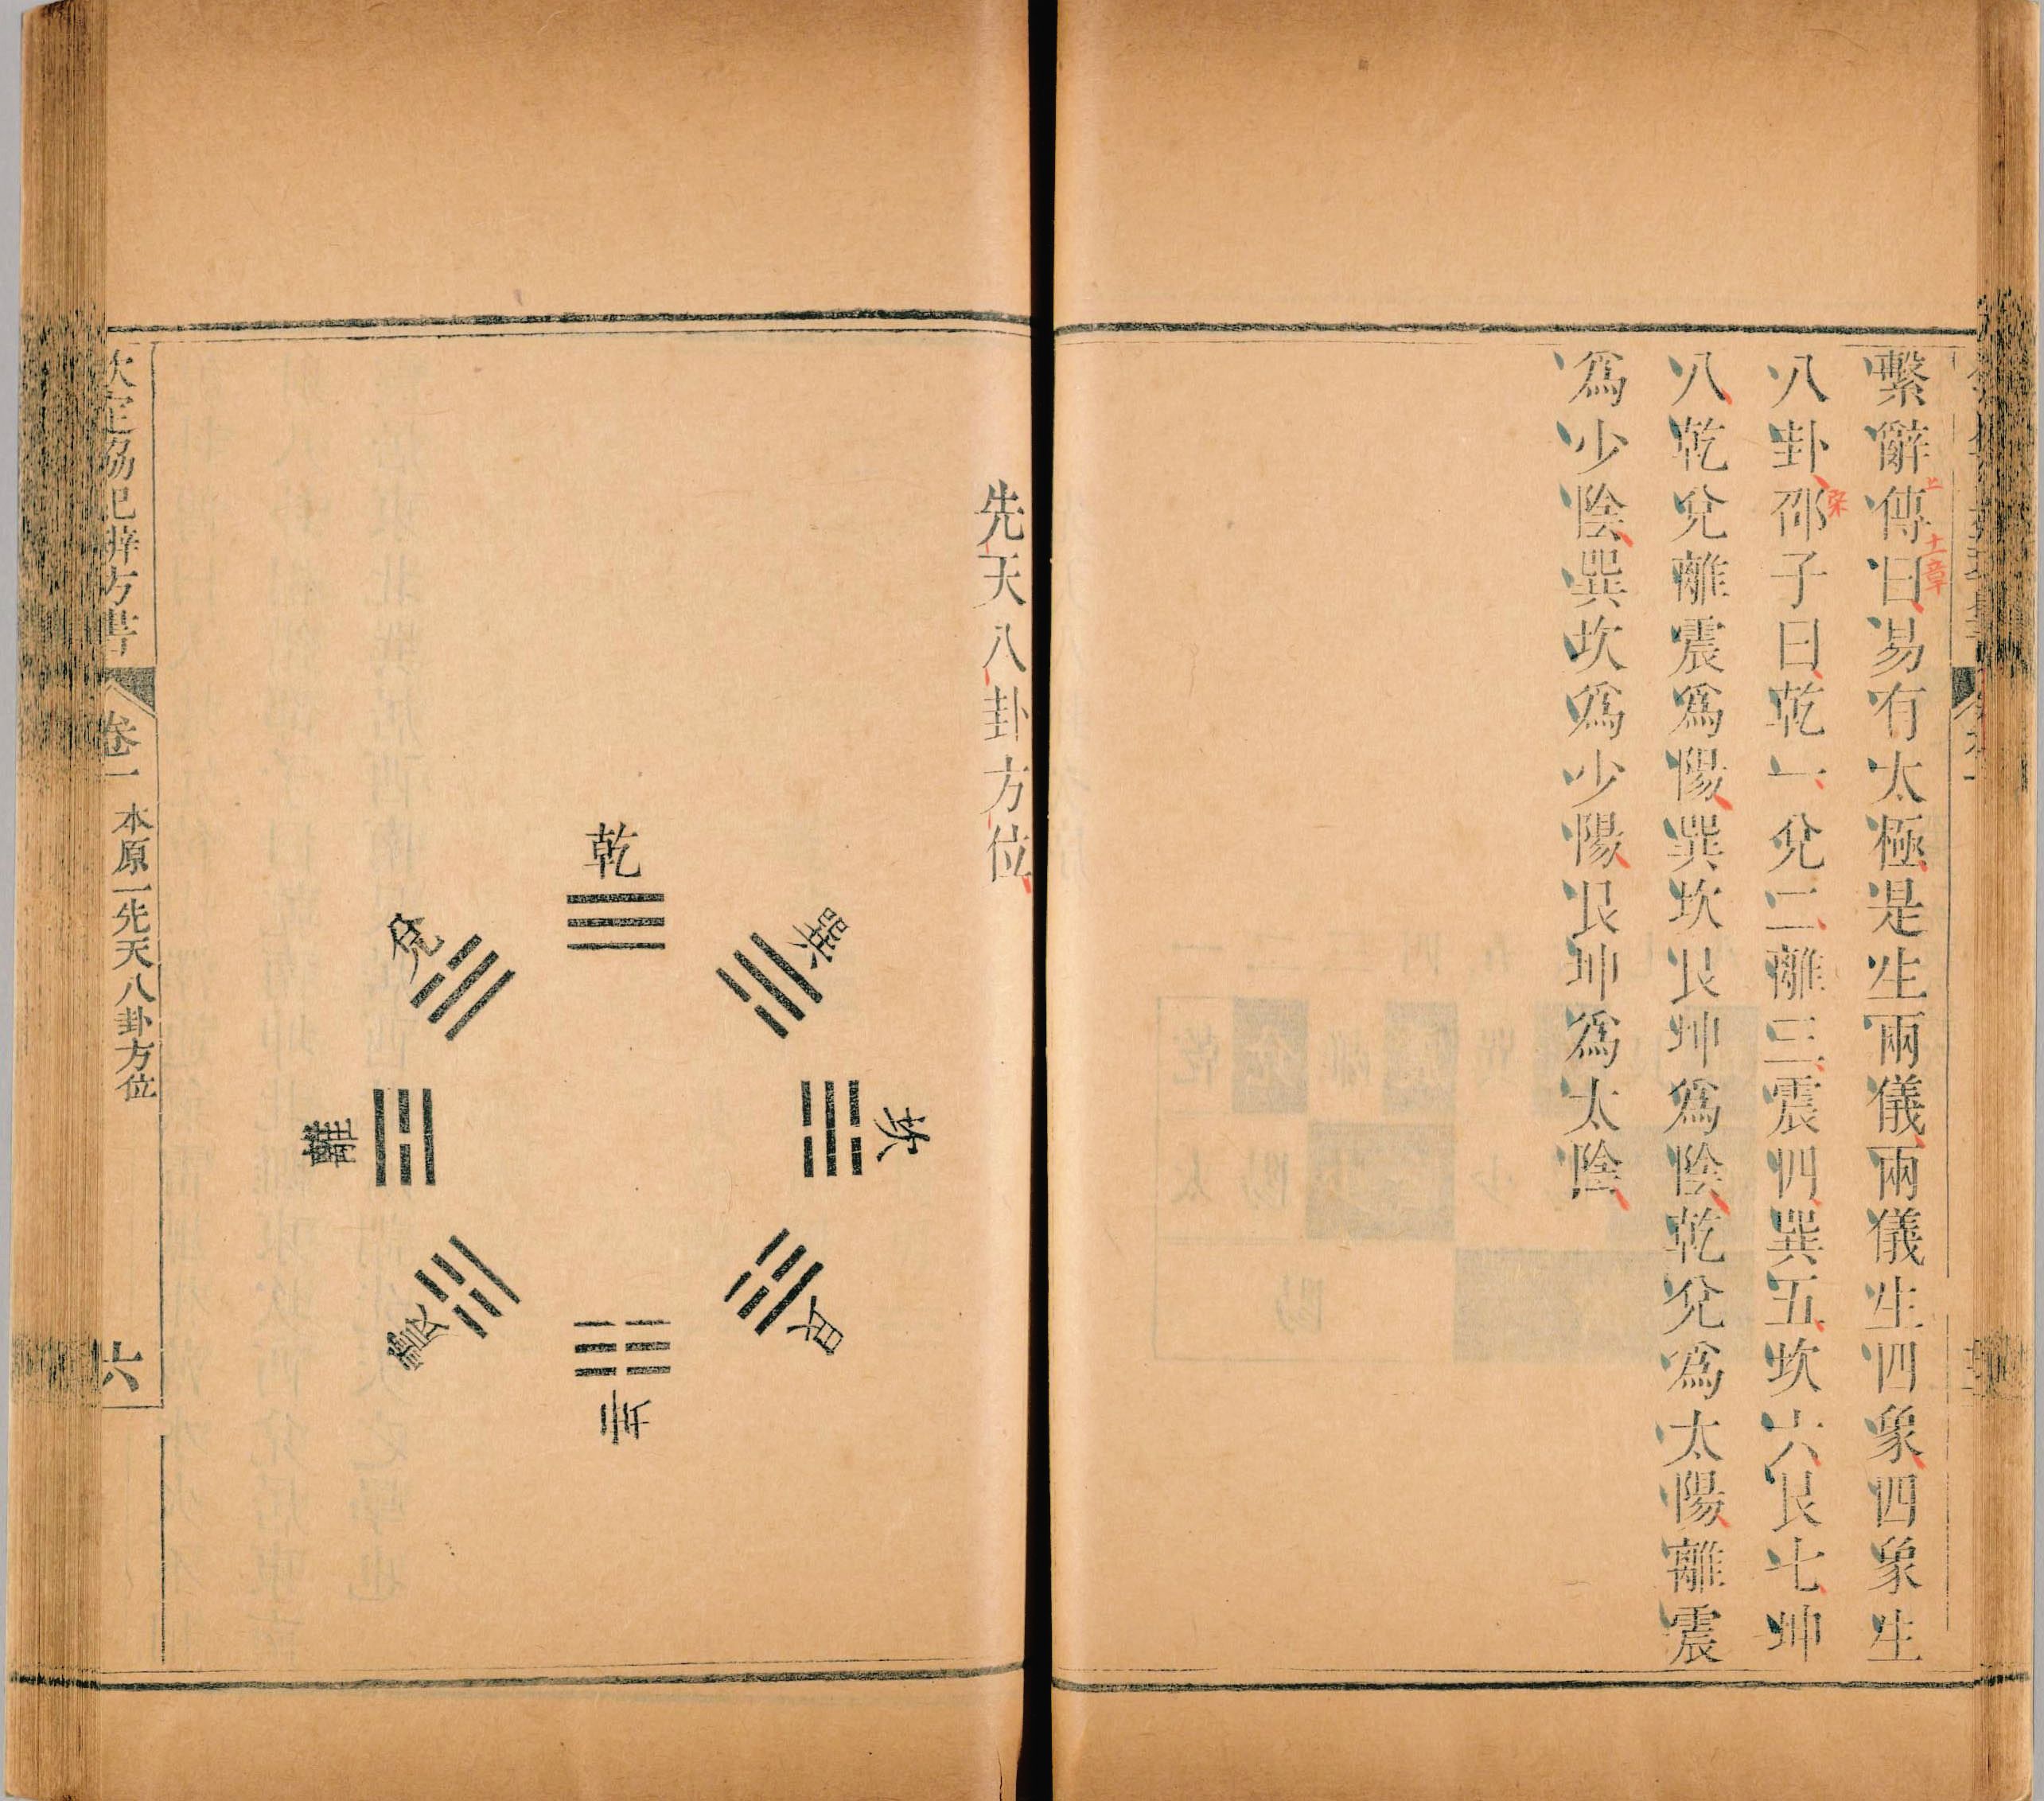 繫辭傳曰易有太極是生兩儀兩儀生四象四象生
上
十一章
八卦邵子曰乾一兌二離三震四巽五坎六艮七坤
宋
八乾兌離震爲陽巽坎艮坤爲陰乾兌爲太陽離震
爲少陰巽坎爲少陽艮坤爲太陰
先天八卦方位
乾
巽
兌
坎
離
艮
震
欽定協紀辨方書
卷一
本原一先天八卦方位
六